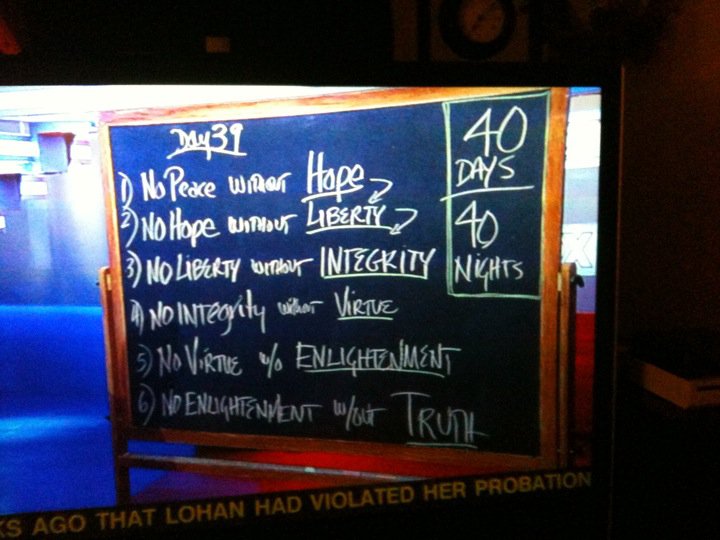 Day 39
1) No Peace without Hope
2) No Hope without Liberty
3) No Liberty without INTEGRITY
4) No INTEgrity without Virtue
5) No Virtue w/o ENLIGHTENMENT
6) NO ENLIGHTENMENT w/out TRUTH
40
DAYS
40
NIGHTS
KS AGO THAT LOHAN HAD VIOLATED HER PROBATION